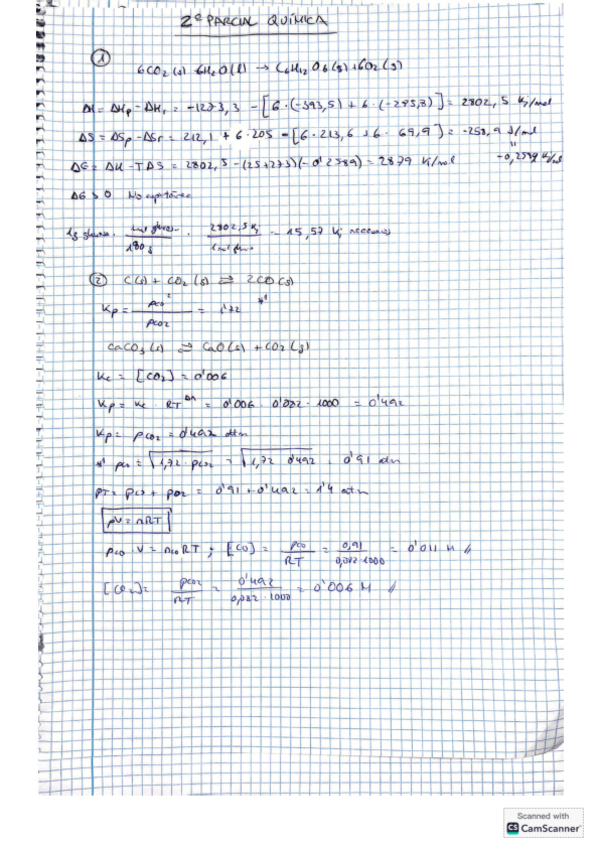 2º PARCIAL QUÍMICA
①
6CO2(g) 6H2O(l) → C6H12O6(s) + 6O2(g)
ΔH = ΔHp - ΔHr = -1273,3 - [6·(-393,5) + 6·(-285,8)] = 2802,5 KJ/mol
ΔS = ΔSp - ΔSr = 212,1 + 6·205 - [6·213,6 + 6·69,9] = -258,9 J/mol
ΔG = ΔH - TΔS = 2802,5 - (25+273)(-0'2589) = 2879 KJ/mol
-0,2589 KJ/mol
ΔG > 0 No espontánea
1g glucosa · 1mol glucosa / 180g · 2802,5 KJ / 1mol gluc = 15,57 KJ necesarios
② C(s) + CO2(g) ⇌ 2CO(g)
Kp = pco² / pco2 = 1'72 *¹
CaCO3(s) ⇌ CaO(s) + CO2(g)
Kc = [CO2] = 0'006
Kp = Kc · RT^Δn = 0'006 · 0'082 · 1000 = 0'492
Kp = pco2 = 0'492 atm
*¹ pco = √1,72 · pco2 = √1,72 · 0'492 = 0'91 atm
PT = pco + pco2 = 0'91 + 0'492 = 1'4 atm
pV = nRT
pco · V = nco RT ; [CO] = pco / RT = 0,91 / 0,082·1000 = 0'011 M //
[CO2] = pco2 / RT = 0'492 / 0,082·1000 = 0'006 M //
Scanned with
CS CamScanner